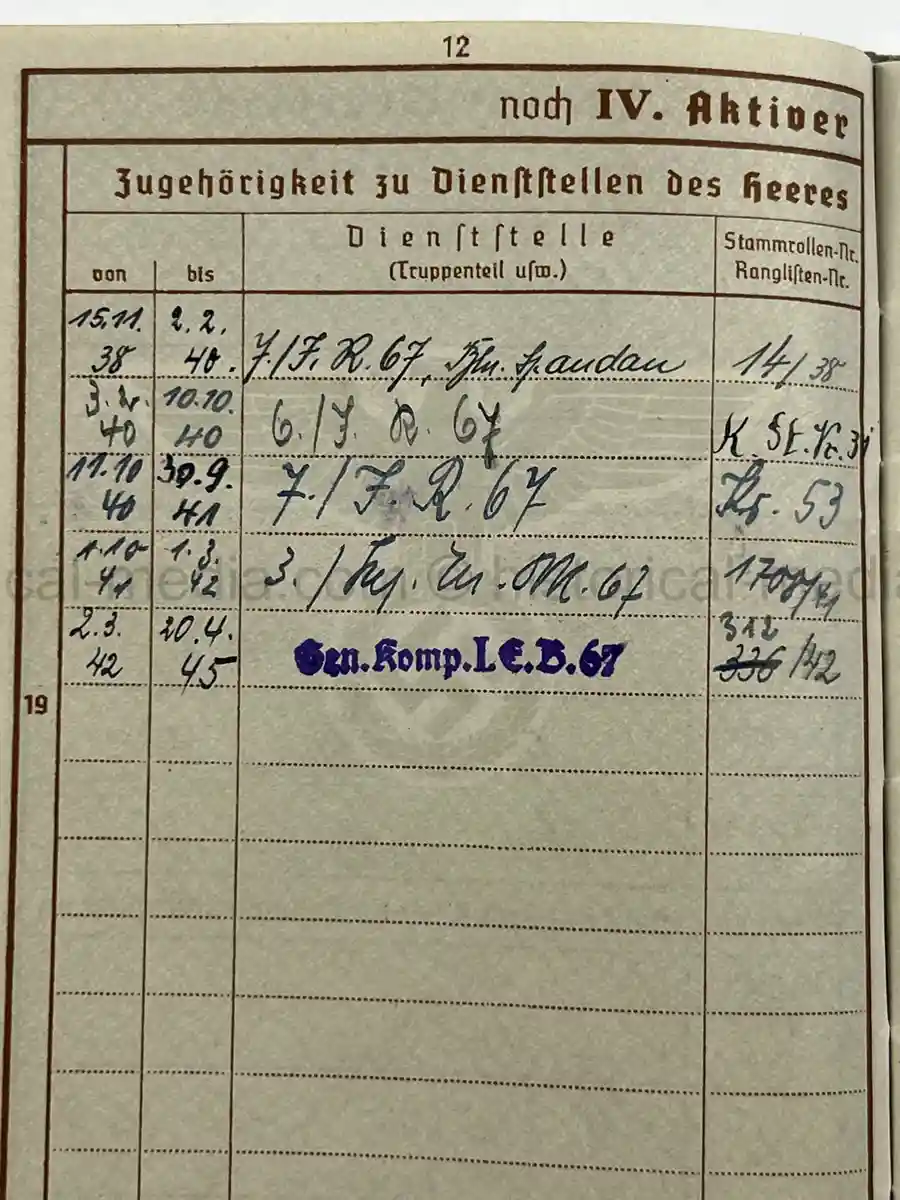 12
noch IV. Aktiver
Zugehörigkeit zu Dienststellen des Heeres
von
bis
Dienststelle
(Truppenteil usw.)
Stammrollen-Nr.
Ranglisten-Nr.
15.11. 38
2.2. 40.
7./J. R. 67, Bln. Spandau
14/38
40
10.10. 40
6./J. R. 67
K. St. Nr. 31
11.10 40
30.9. 41
7./J. R. 67
53
1.10 41
1.3. 42
3./ 67
2.3. 42
20.4. 45
Gen.Komp.I.E.B.67
312
336 /42
19